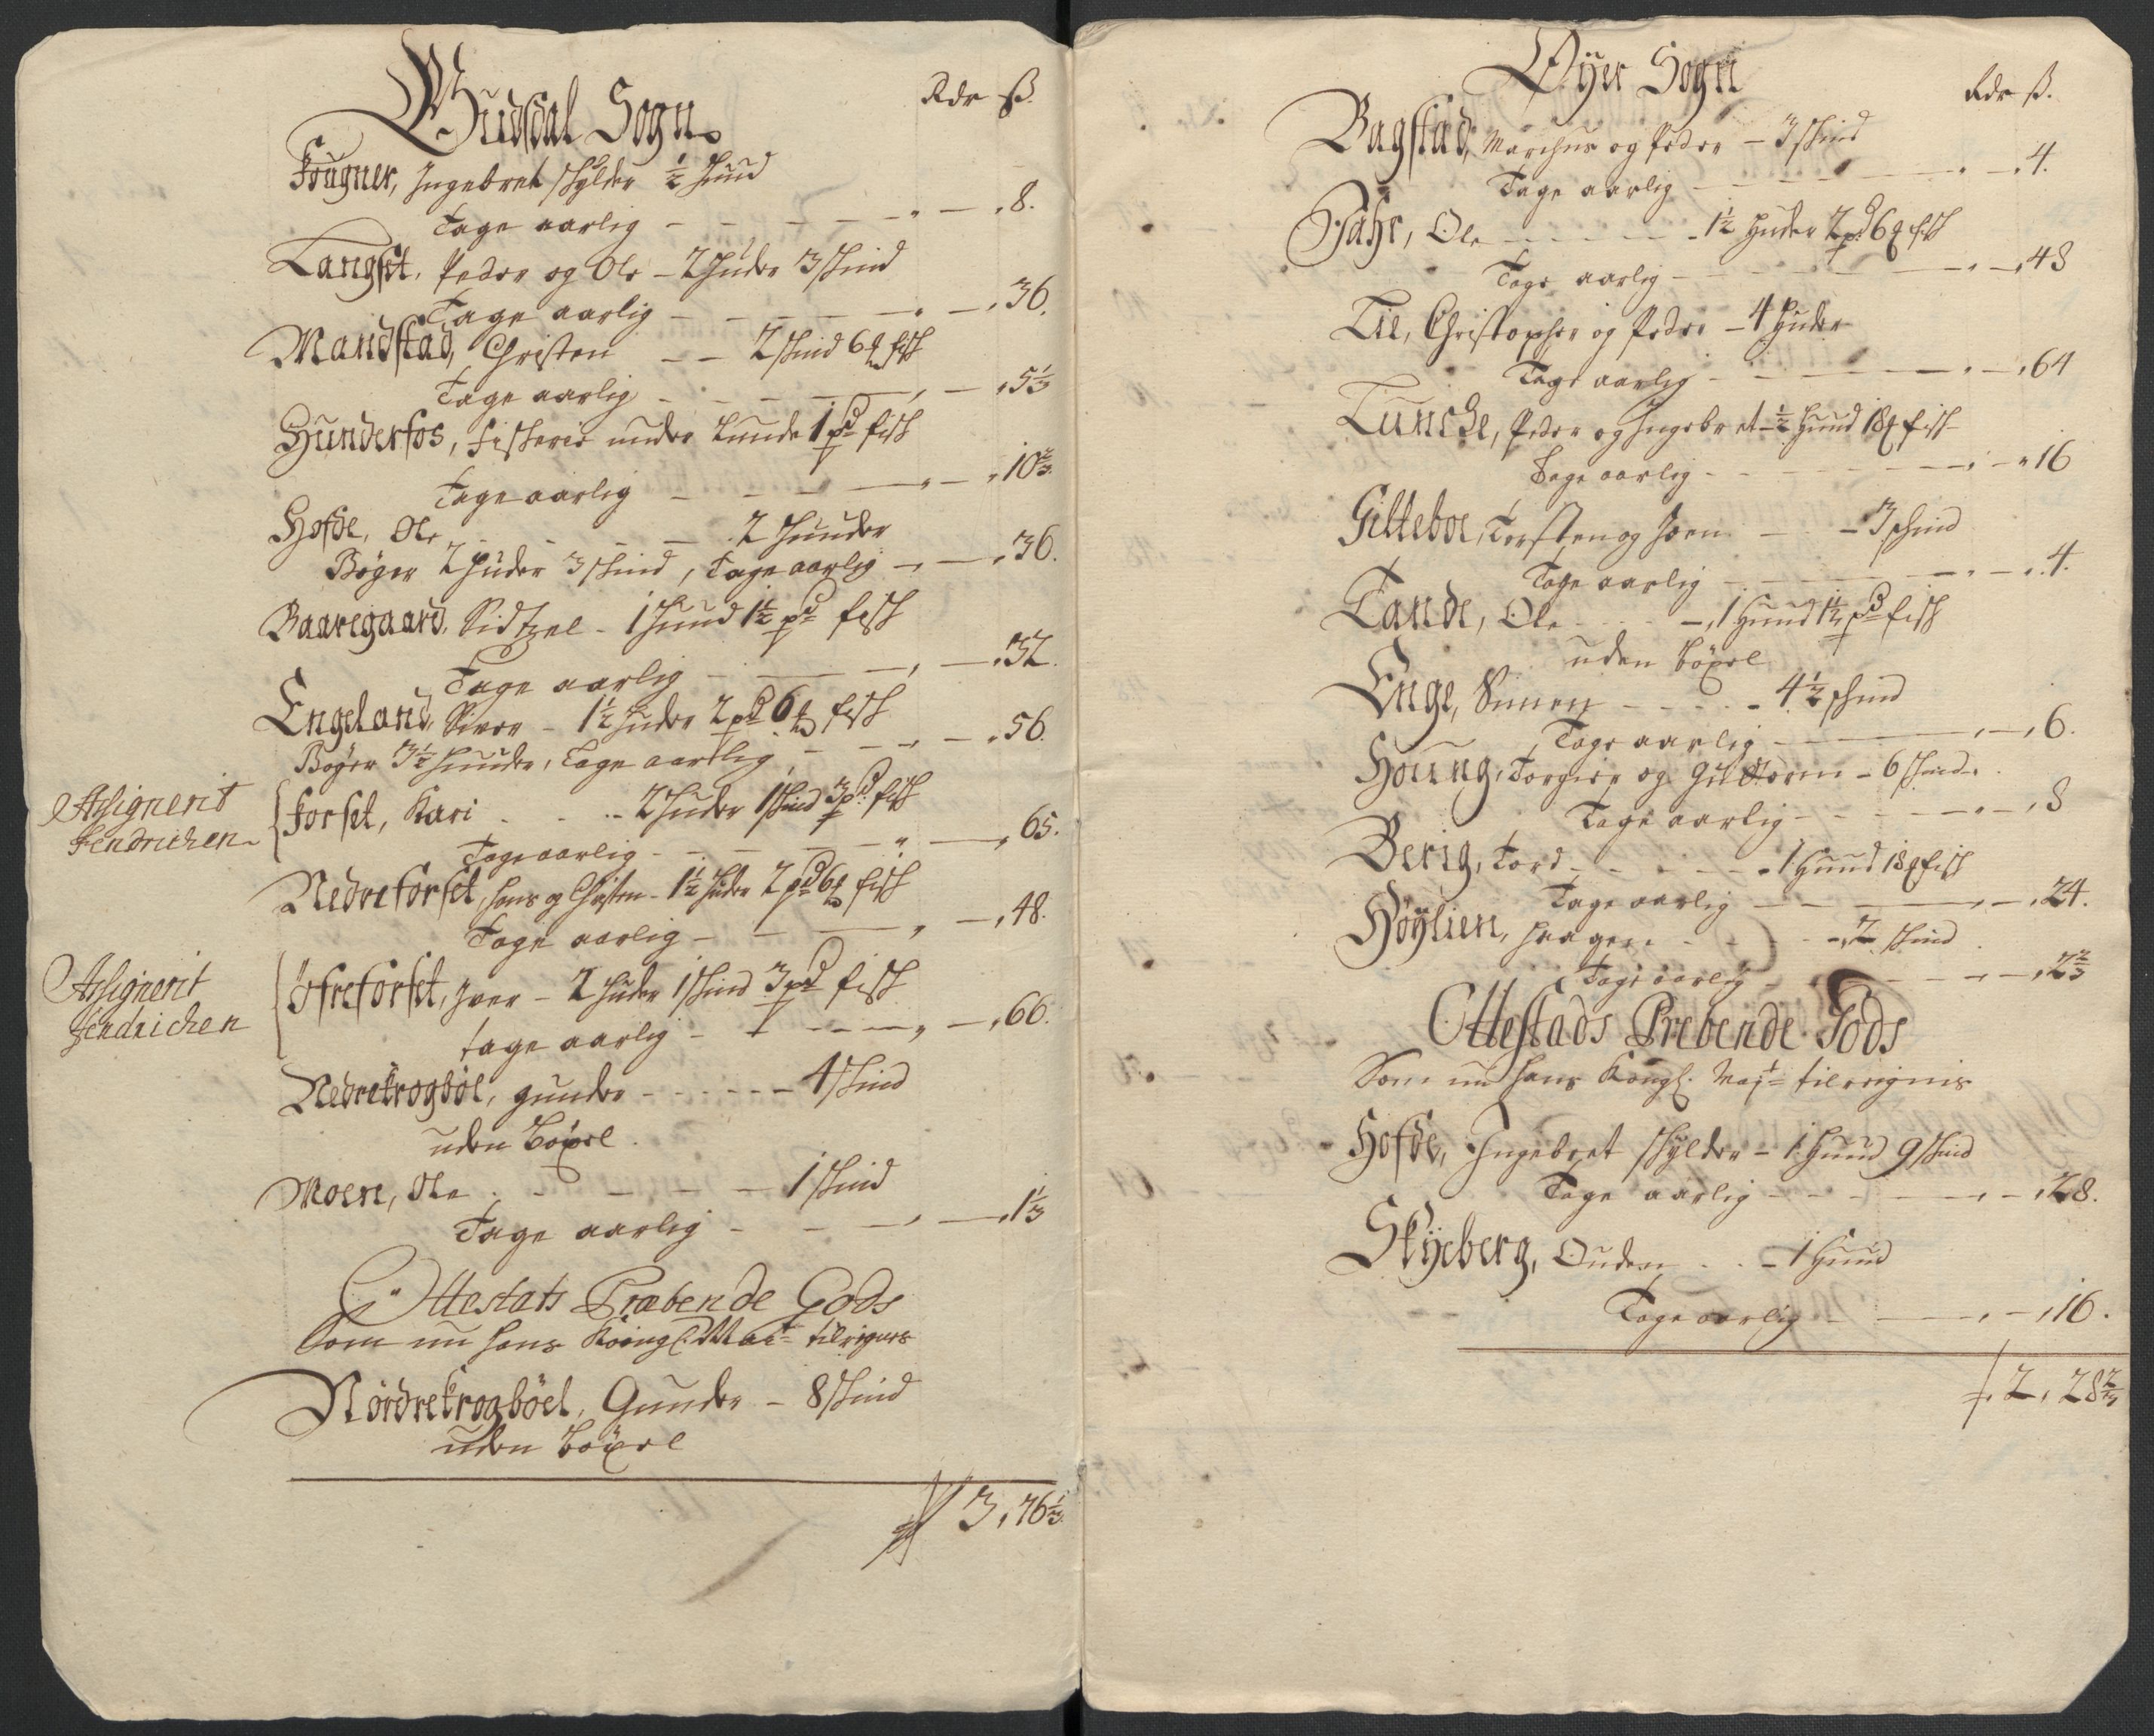 Gudsdal Sogn.
Rdr ß.
Frugner, Ingebret skylder ½ Huud
Tage aarlig - - - - - „ - „ 8.
Langset, Peder og Ole - 2 Huder 3 skind
Tage aarlig - - - - - „ - „ 36.
Mandstad, Christen - - 2 skind 6 ℔ fisk
Tage aarlig - - - - „ - „ 5⅓
Hunderfos, fiskerie under Lunde 1 pd fisk
Tage aarlig - - - - „ - „ 10⅔
Hofde, Ole - - - - 2 Huuder
Böger 2 Huder 3 skind, Tage aarlig - „ - „ 36.
Baaregaard, Sidtzel - 1 Huud 1½ pd fisk
Tage aarlig - - - - „ - „ 32.
Engeland, Siver - 1½ Huder 2 pd 6 ℔ fisk
Böger 3½ Huuder, Tage aarlig, - - „ - „ 56.
Assignerit
Fendrichen
Forset, Kari - - - 2 Huder 1 skind 3 pd fisk
Tage aarlig - - - - „ - „ 65.
Nedreforset, Hans og Christen - 1½ Huder 2 pd 6 ℔ fisk
Tage aarlig - - - „ - „ 48.
Assignerit
Fendrichen
Öfreforset, Iver - 2 Huder 1 skind 3 pd fisk
tage aarlig - - - - „ - „ 66.
Nedrekrogböl, gunder - - - - - - 4 skind
uden böxel.
Moen, Ole - - - - - 1 skind
Tage aarlig - - - „ - „ 1⅓
Ottestats Præbende Gods
Som nu hans Kongl. Mait tileignes
Nordrekrogböel, Gunder - 8 skind
uden böxel
3 „ 76⅓

Öyer Sogn
Rdr ß.
Bagstad, Marchus og Peder - 3 skind
Tage aarlig - - - - - „ - „ 4.
Schr, Ole - - - - - 1½ Huder 2 pd 6 ℔ fisk
Tage aarlig - - - - - „ - „ 48
Lie, Christopher og Peder - 4 Huder
Tage aarlig - - - - - „ - „ 64
Lunche, Peder og Ingebret - ½ Huud 18 ℔ fisk
Tage aarlig - - - - - „ - „ 16
Gilleboe, Torsten og Joen - - - 3 skind
Tage aarlig - - - - - „ - „ 4.
Tande, Ole - - - - „ 1 Huud 1½ pd fisk
uden böxel
Enge, Simen - - - - - 4½ skind
Tage aarlig - - - - „ - „ 6.
Houng, Torgier og Guttorm - 6 skind.
Tage aarlig - - - - „ - „ 8
Berig, Tord - - - - - 1 Huud 18 ℔ fisk
Tage aarlig - - - - „ - „ 24.
Höylien, Haagen - - - - - 2 skind
Tage aarlig - - - - „ - „ 2⅔
Ottestads Prebende Gods
Som nu hans Kongl. Majt tileignis
Hofde, Ingebret skylder - 1 Huud 9 skind
Tage aarlig - - - - - „ - „ 28.
Skyeberg, Ouden - - - 1 Huud
Tage aarlig - - - „ - „ 16.
2 „ 28⅔